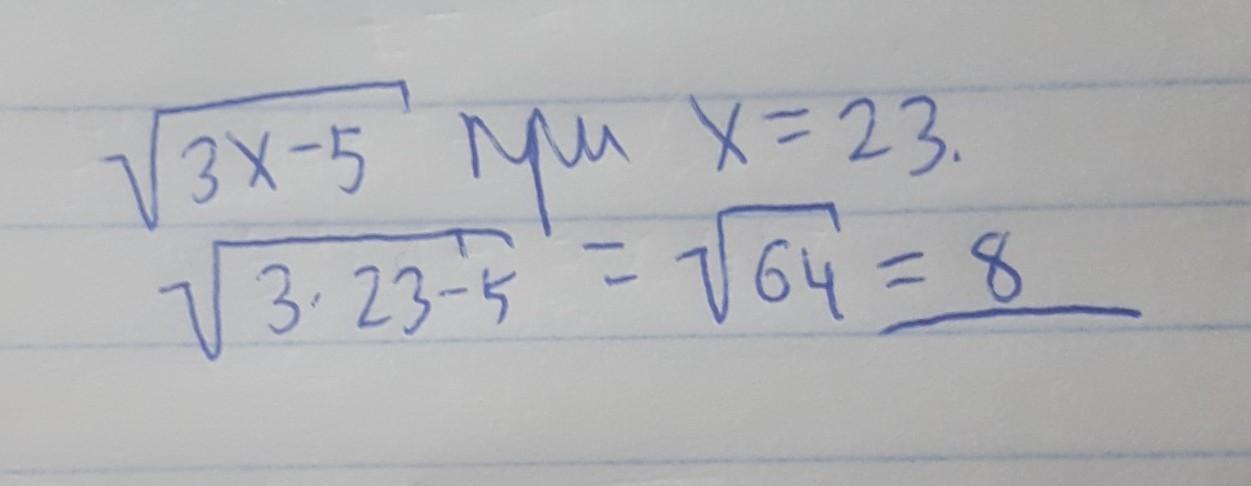 √3x-5 при x=23.
√3·23-5 = √64 = 8